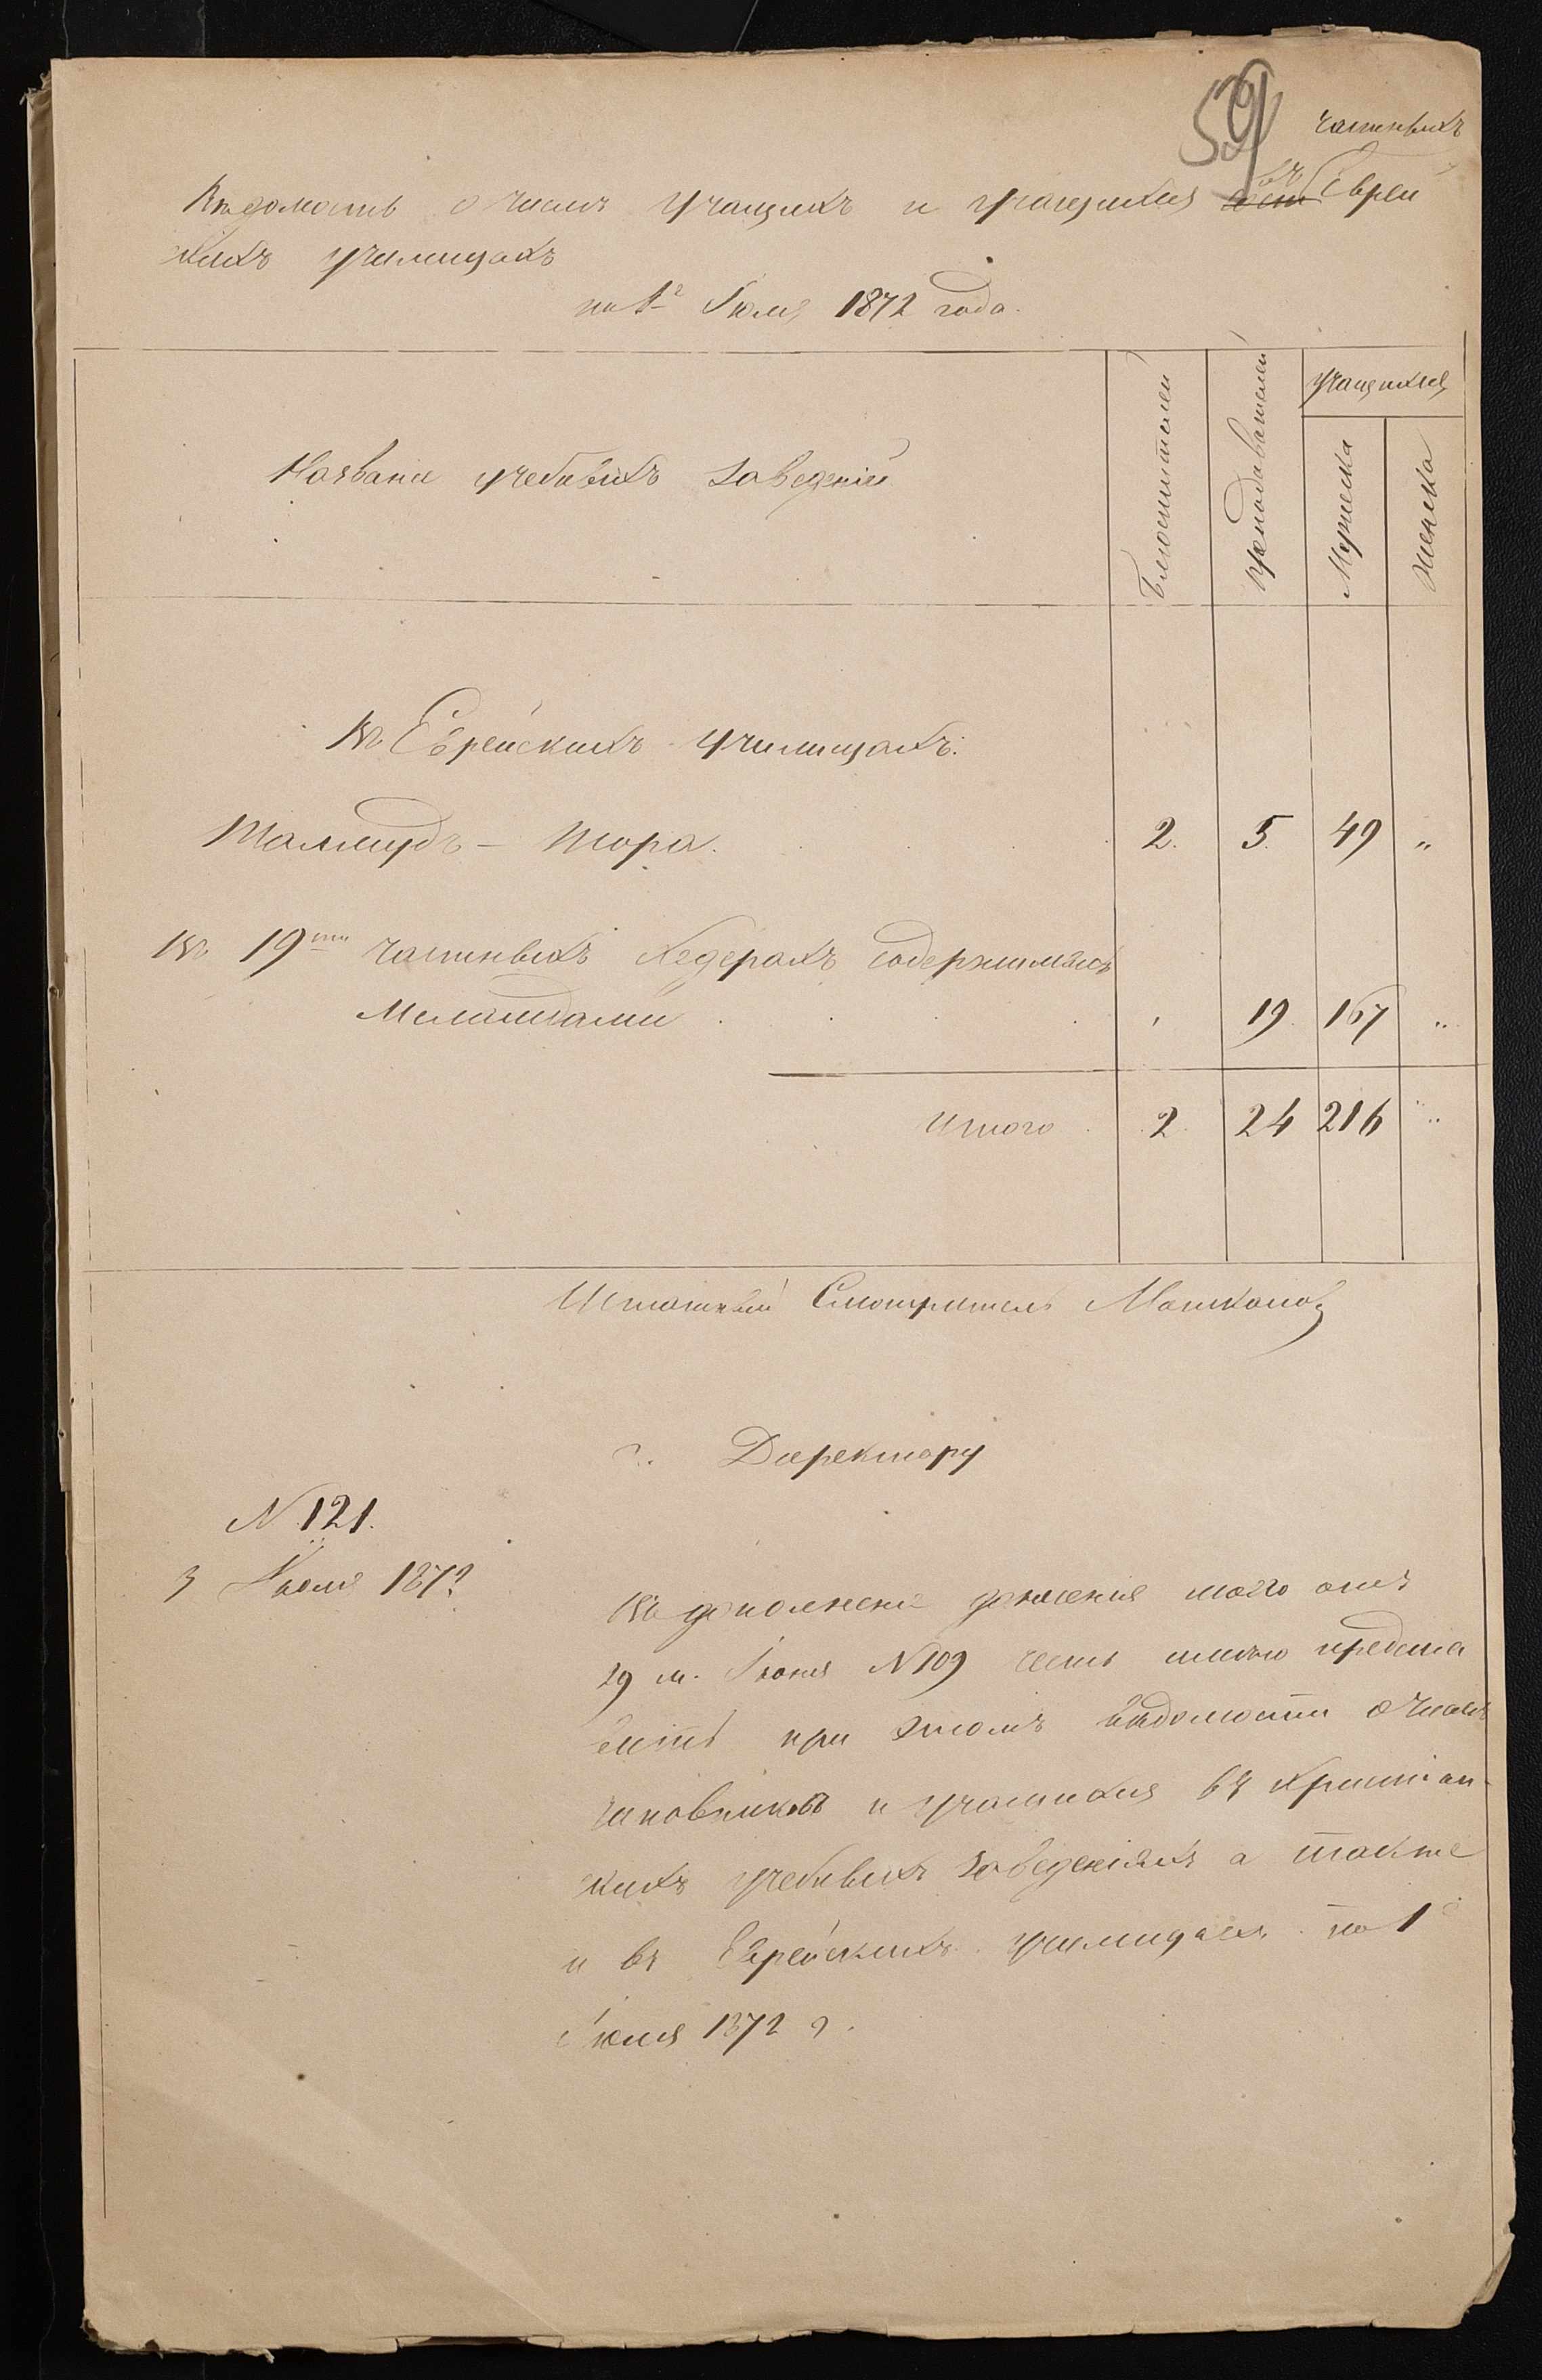 59
частныхъ
Вѣдомость о числѣ учащихъ и учащихся въ Еврей
скихъ училищахъ
на 1е Іюля 1872 года.
Названіе учебныхъ заведеній
Блюстителей
преподавателей
учащихся
Мужеска
Женска
Въ Еврейскихъ училищахъ:
Талмудъ – Тора. 2. 5. 49 „
Въ 19ти частныхъ Хедерахъ содержимыхъ
Меламдами . . . , 19. 167 „
Итого 2. 24 216 „
Штатный Смотритель
г. Директору
N 121.
3 Іюля 1872
Въ дополненіе донесенія моего отъ
29 м. Іюня N 109 честь имѣю предста
вить при этомъ вѣдомости о числѣ
чиновниковъ и учащихся въ Христіан-
скихъ учебныхъ заведеніяхъ а также
и въ Еврейскихъ училищахъ на 1е
Іюля 1872 г.